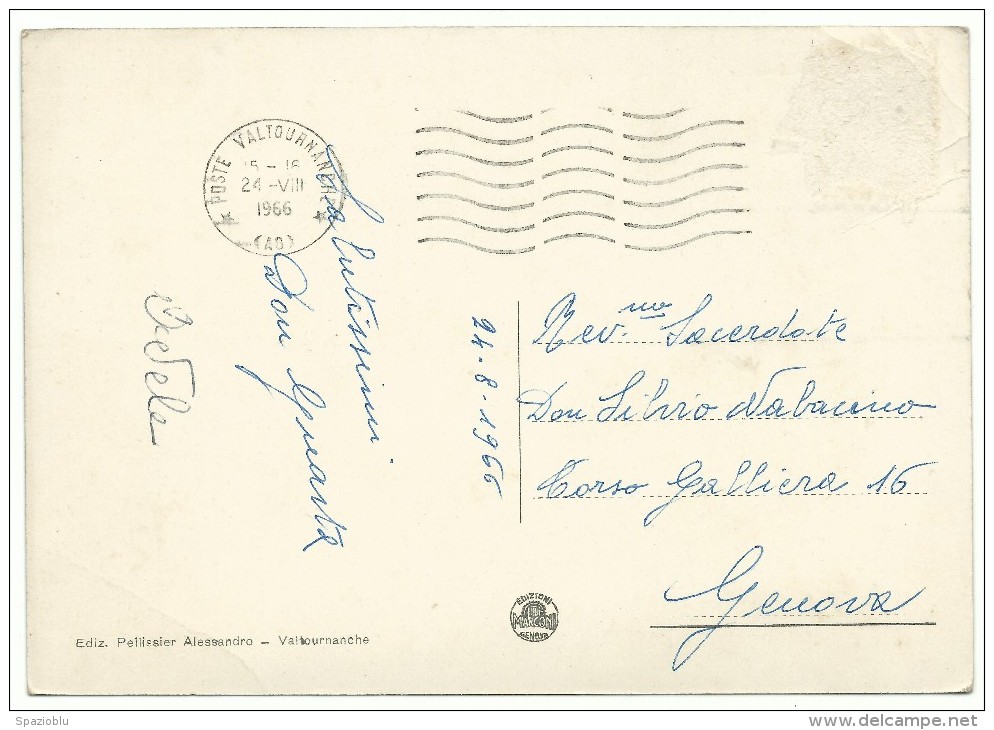 POSTE VALTOURNANCHE
15 - 16
24 -VIII
1966
(AO)
Salutissimi
Don
24-8-1966
Rev.mo Sacerdote
Don Silvio
Corso Galliera 16
Genova
EDIZIONI
MARCONI
GENOVA
Ediz. Pellissier Alessandro – Valtournanche
Spazioblu
delcampe.net